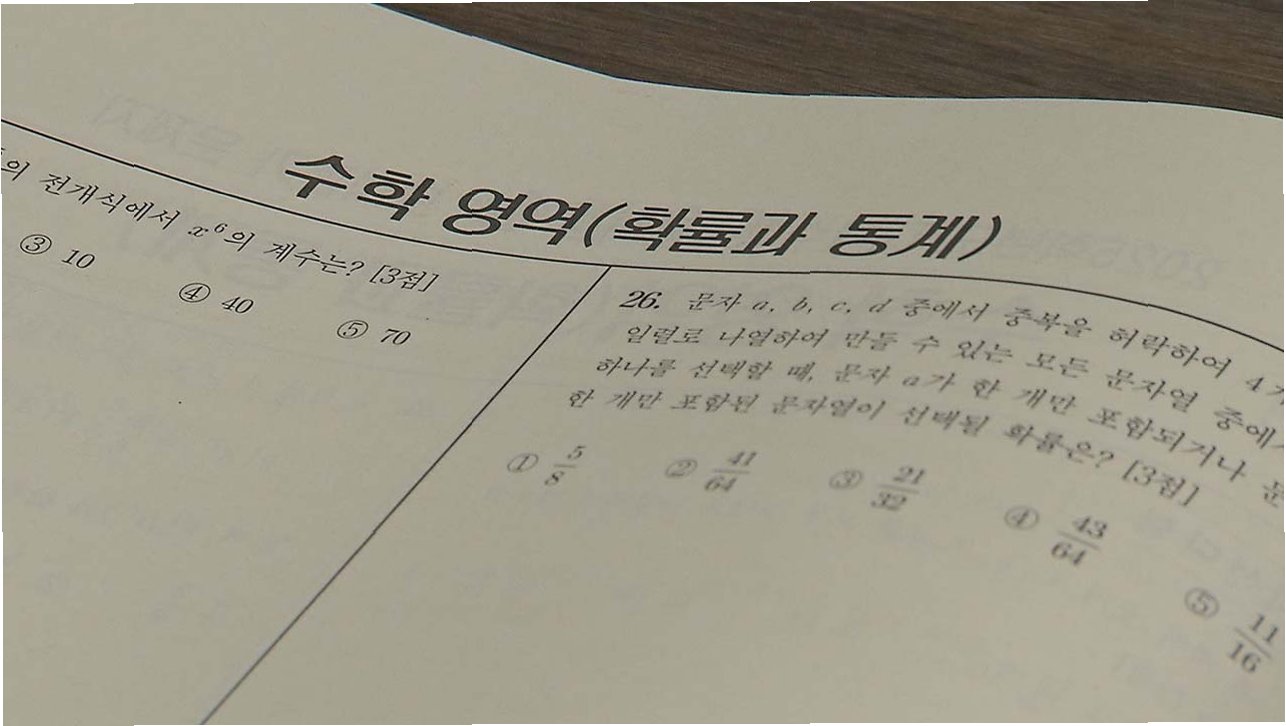 수학 영역(확률과 통계)
의 전개식에서 x⁶의 계수는? [3점]
③ 10
④ 40
⑤ 70
26. 문자 a, b, c, d 중에서 중복을 허락하여 4
일렬로 나열하여 만들 수 있는 모든 문자열 중에
하나를 선택할 때, 문자 a가 한 개만 포함되거나
한 개만 포함된 문자열이 선택될 확률은? [3점]
① 5/8
② 41/64
③ 21/32
④ 43/64
⑤ 11/16